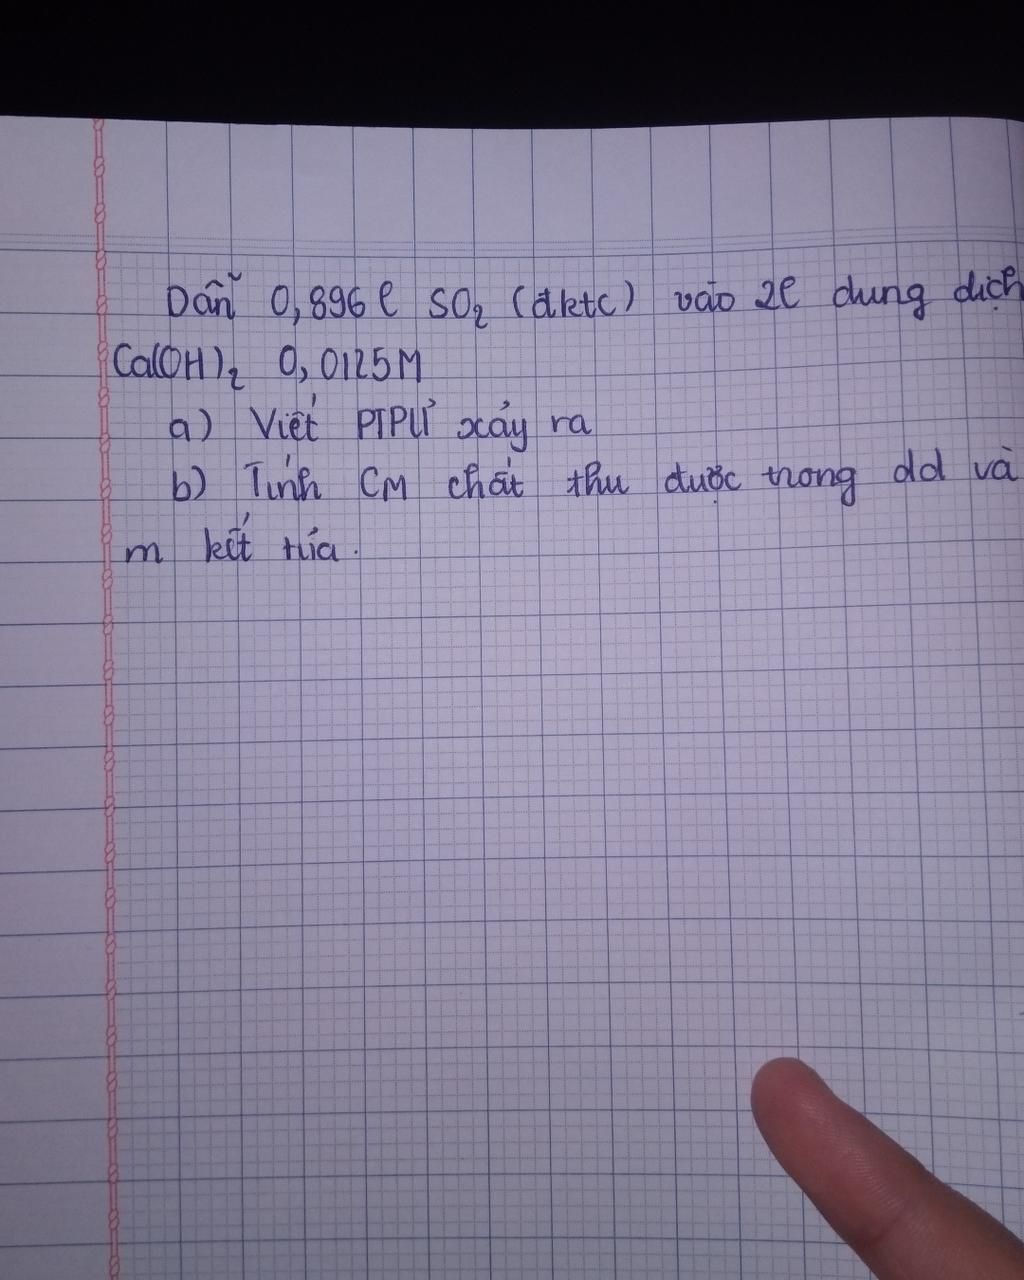 Dẫn 0,896l SO₂ (đktc) vào 2l dung dịch
Ca(OH)₂ 0,0125M
a) Viết PTPƯ xảy ra
b) Tính CM chất thu được trong dd và
m kết tủa.